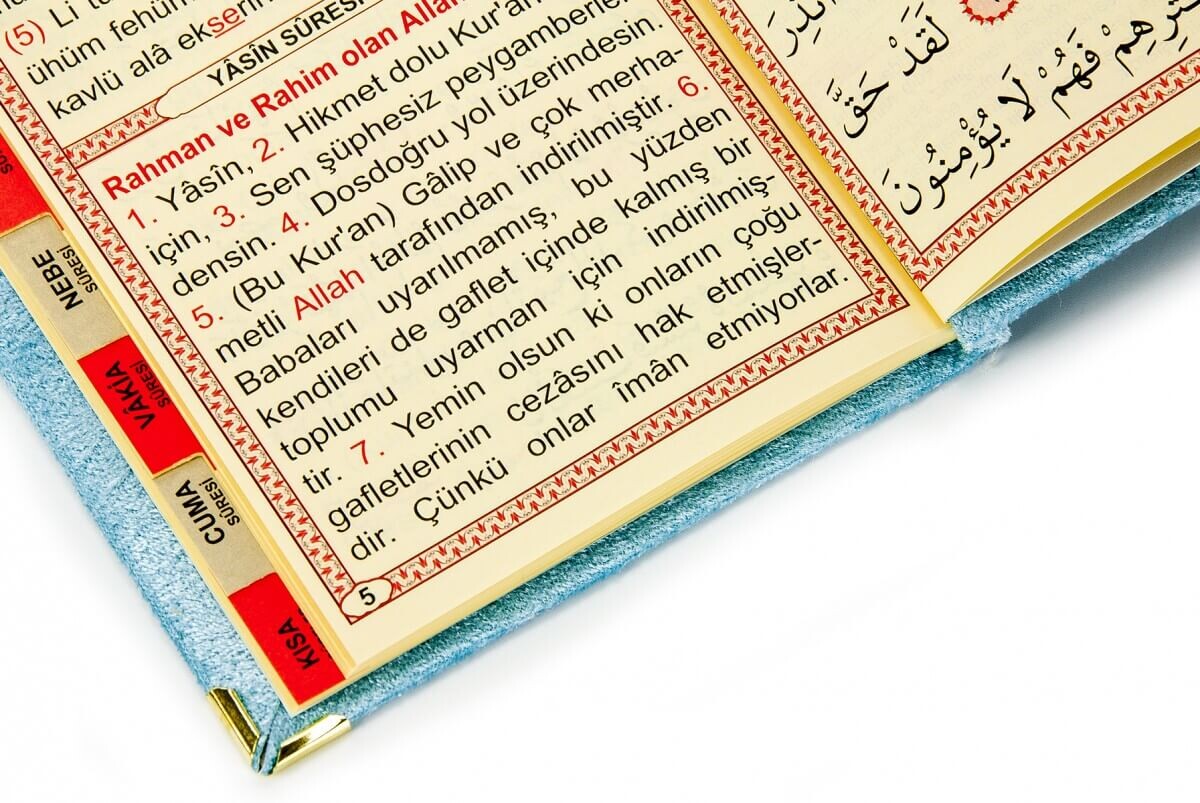 (5) Li
ühüm fehüm
kavlü alâ ekserin
YÂSÎN SÛRESİ
Rahman ve Rahim olan Allah
1. Yâsîn, 2. Hikmet dolu Kur'an
için, 3. Sen şüphesiz peygamberler-
densin. 4. Dosdoğru yol üzerindesin.
5. (Bu Kur'an) Gâlip ve çok merha-
metli Allah tarafından indirilmiştir. 6.
Babaları uyarılmamış, bu yüzden
kendileri de gaflet içinde kalmış bir
toplumu uyarman için indirilmiş-
tir. 7. Yemin olsun ki onların çoğu
gafletlerinin cezâsını hak etmişler-
dir. Çünkü onlar îmân etmiyorlar.
5
NEBE
SÛRESİ
VÂKIA
SÛRESİ
CUMA
SÛRESİ
KISA
لَقَدْ حَقَّ
فَهُمْ لَا يُؤْمِنُونَ